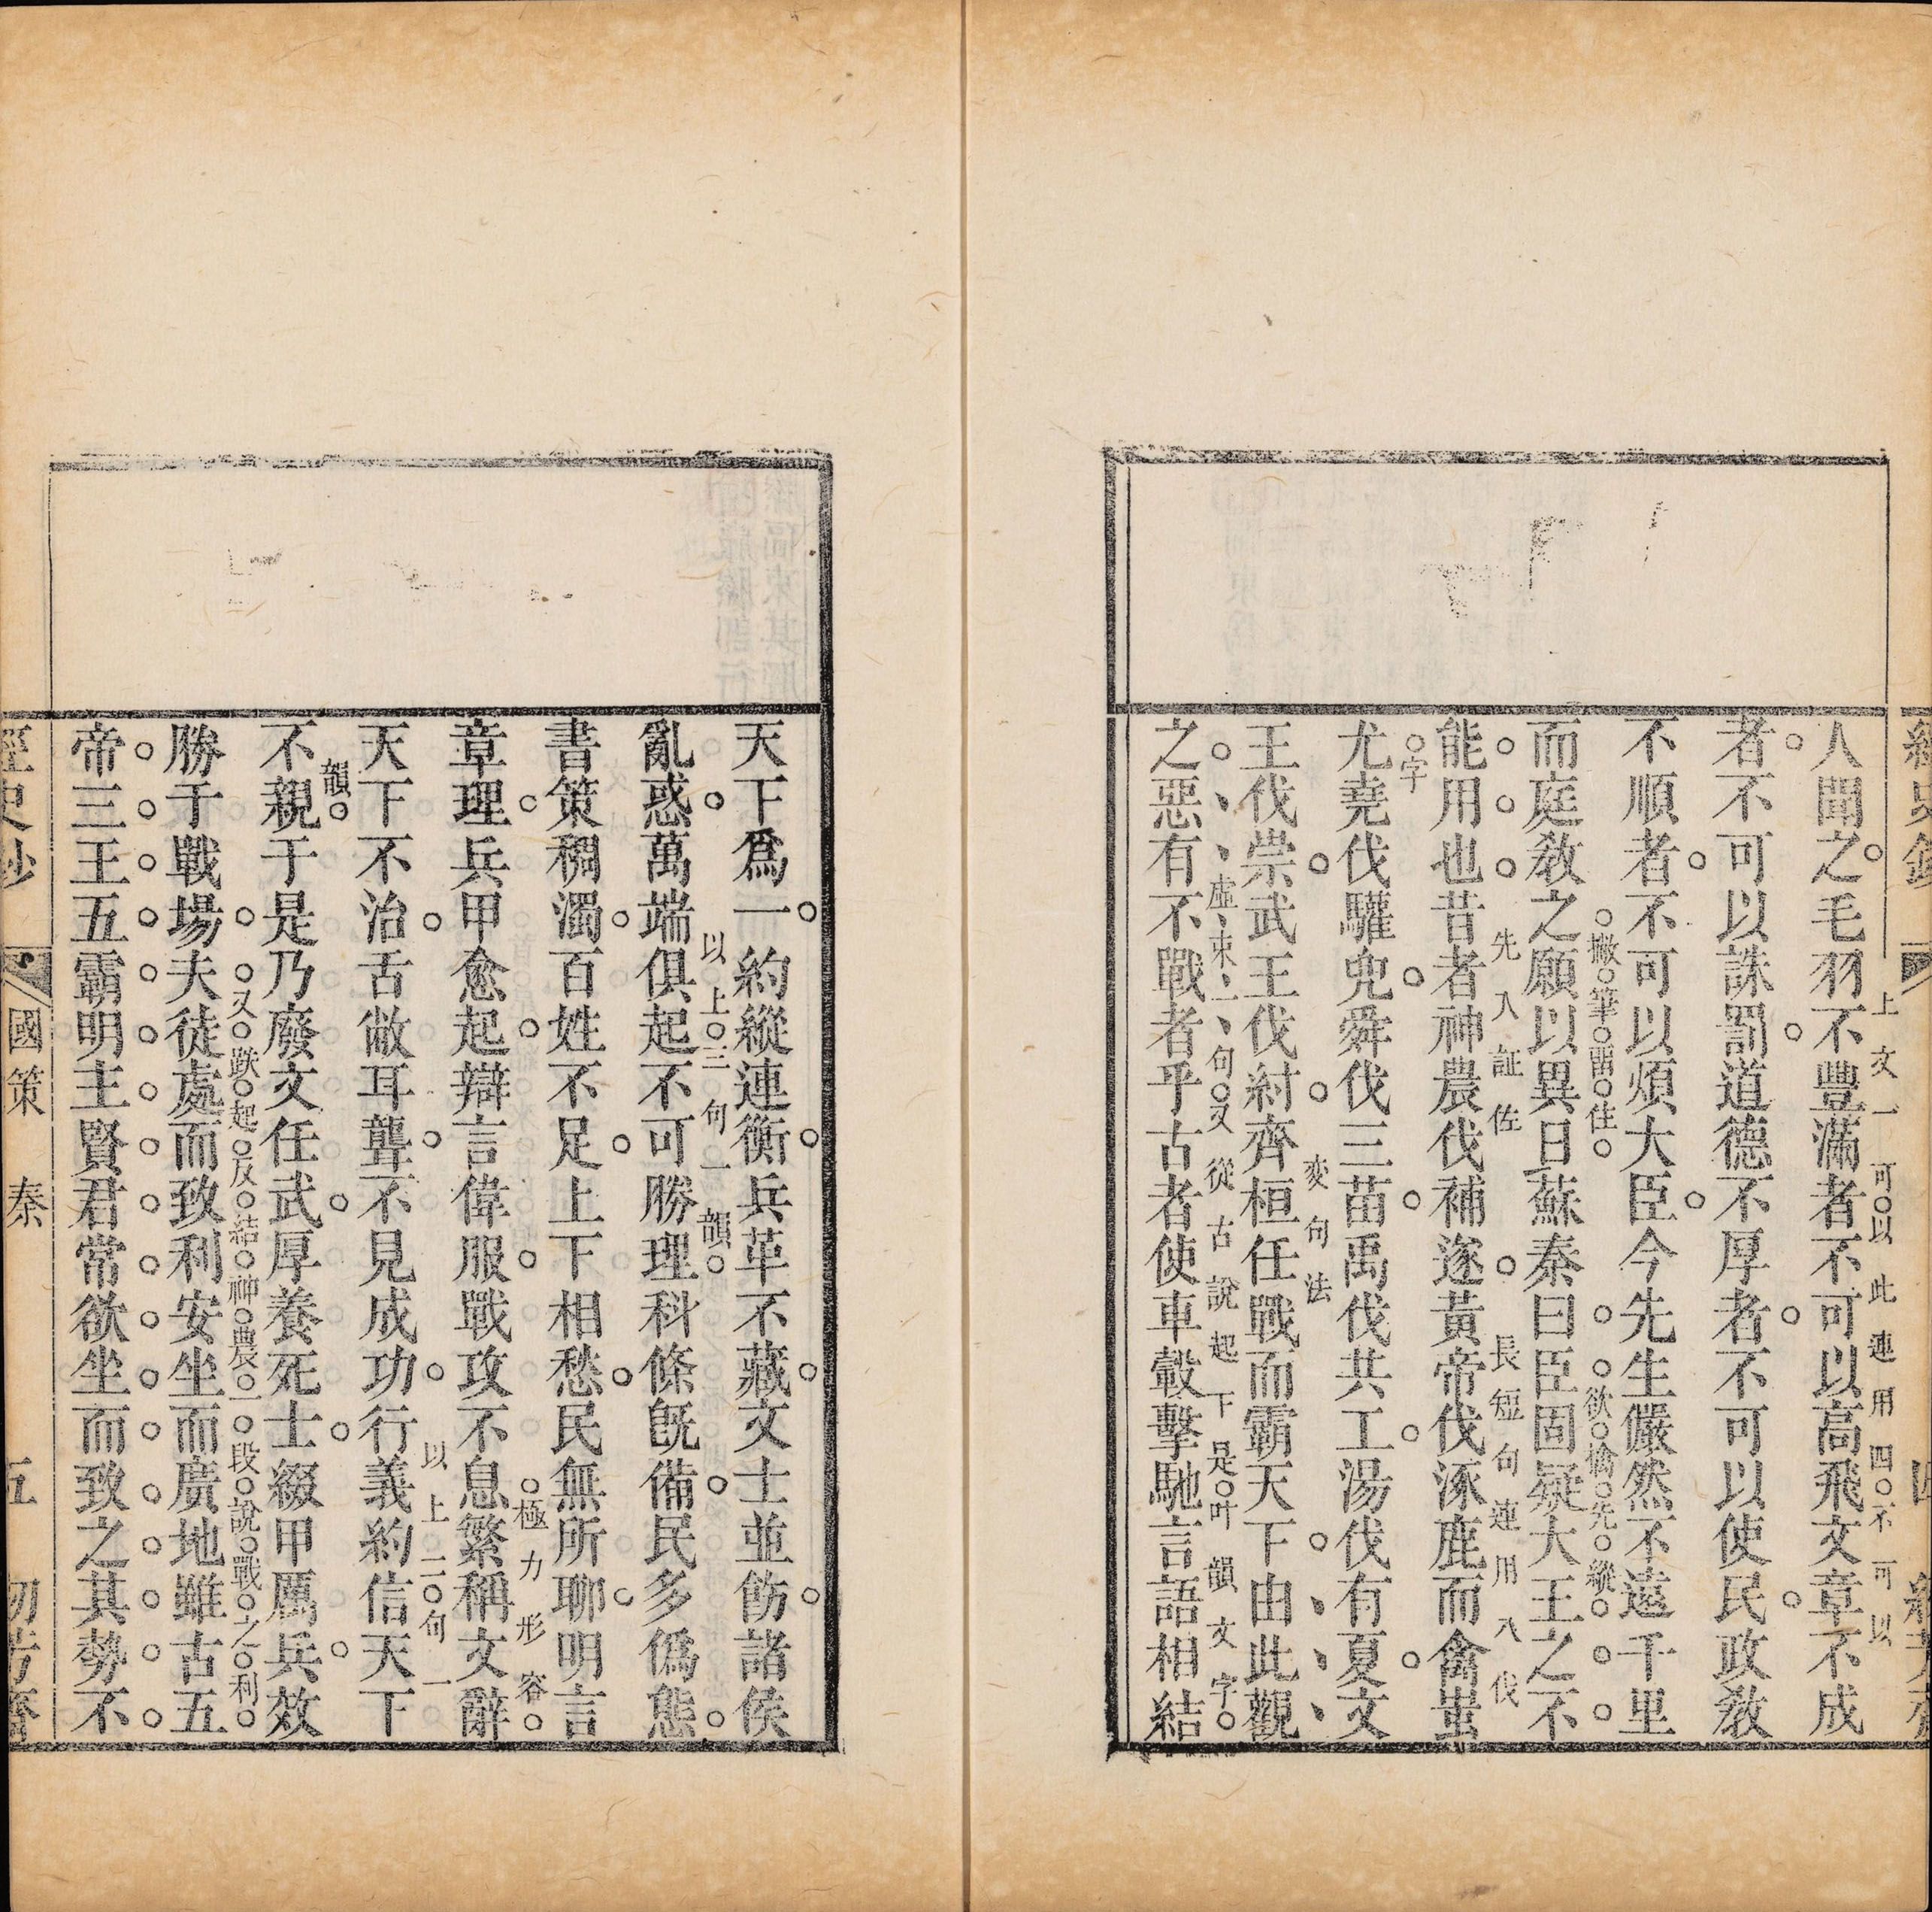 人聞之毛羽不豐滿者不可以高飛文章不成
上文一可以此連用四不可以
者不可以誅罰道德不厚者不可以使民政教
不順者不可以煩大臣今先生儼然不遠千里
而庭教之願以異日蘇秦曰臣固疑大王之不
撇筆畱住
欲擒先縱
能用也昔者神農伐補遂黃帝伐涿鹿而禽蚩
先入証佐
長短句連用八伐
字
尤堯伐驩兜舜伐三苗禹伐共工湯伐有夏文
王伐崇武王伐紂齊桓任戰而霸天下由此觀
変句法
之惡有不戰者乎古者使車轂擊馳言語相結
虛束一句又從古說起下是叶韻文字
天下爲一約縱連衡兵革不藏文士並飭諸侯
亂惑萬端俱起不可勝理科條旣備民多僞態
以上三句一韻
書策稠濁百姓不足上下相愁民無所聊明言
章理兵甲愈起辯言偉服戰攻不息繁稱文辭
極力形容
天下不治舌敝耳聾不見成功行義約信天下
以上二句一
韻
不親于是乃廢文任武厚養死士綴甲厲兵效
勝于戰場夫徒處而致利安坐而廣地雖古五
又跌起反結神農一段說戰之利
帝三王五霸明主賢君常欲坐而致之其勢不
國策 秦 五